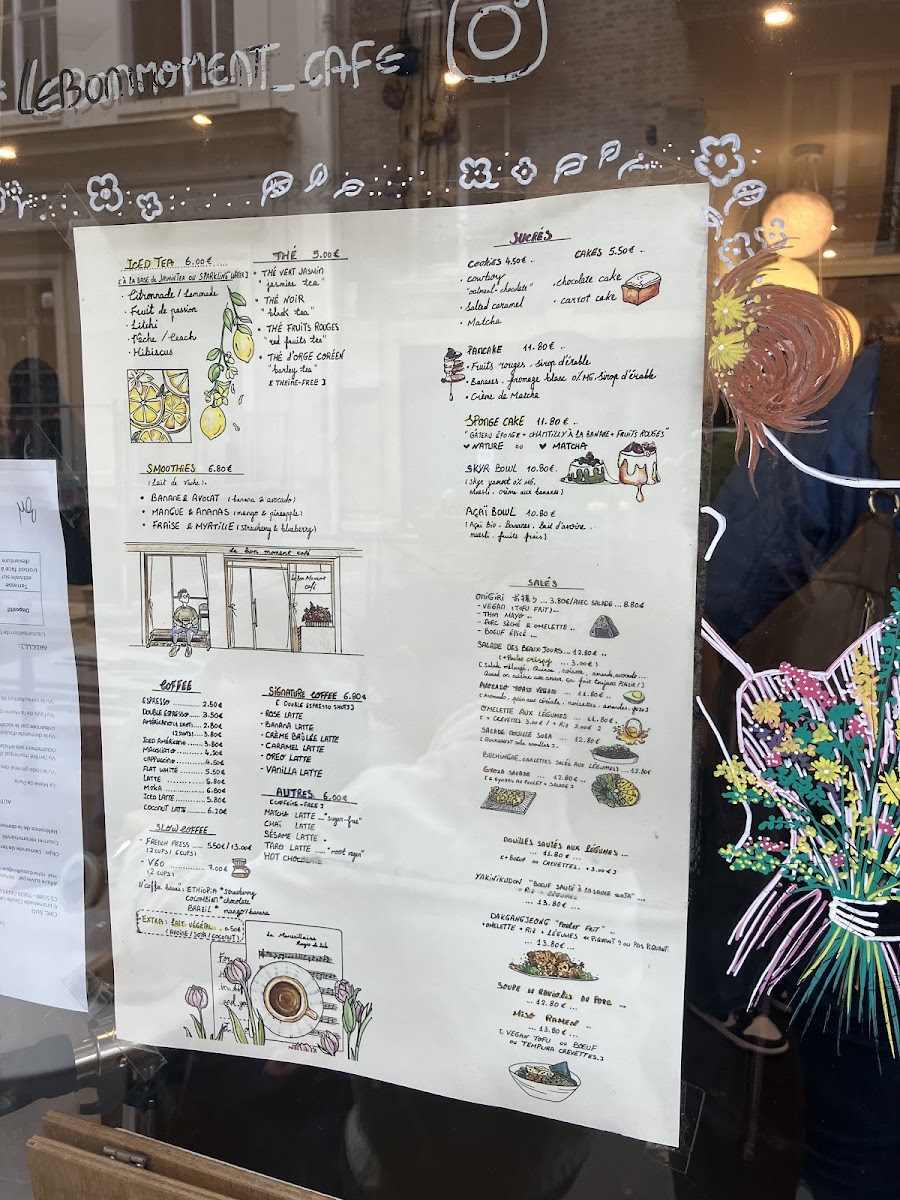 LEBONMOMENT_CAFE
ICED TEA 6.00€
[à LA BASE de JASMIN TEA OU SPARKLING WATER]
• Citronnade / Lemonade
• Fruit de passion
• Litchi
• Pêche / Peach
• Hibiscus
THÉ 5.00€
• THÉ VERT JASMIN
"jasmine tea"
• THÉ NOIR
"black tea"
• THÉ FRUITS ROUGES
"red fruits tea"
• THÉ D'ORGE CORÉEN
"barley tea"
[THEINE-FREE]
SMOOTHIES 6.80€
(lait de vache)
• BANANE & AVOCAT (banana & avocado)
• MANGUE & ANANAS (mango & pineapple)
• FRAISE & MYRTILLE (strawberry & blueberry)
le bon moment café
Le Bon Moment
café
COFFEE
ESPRESSO 2.50€
DOUBLE ESPRESSO 3.50€
AMÉRICANO (1 SHOT) 2.80€
(2 SHOTS) 3.80€
ICED AMÉRICANO 3.80€
MACCHIATO 4.50€
CAPPUCCINO 4.50€
FLAT WHITE 5.50€
LATTE 5.80€
MOKA 5.80€
ICED LATTE 5.80€
COCONUT LATTE 6.20€
SIGNATURE COFFEE 6.80€
[DOUBLE ESPRESSO SHOTS]
• ROSE LATTE
• BANANA LATTE
• CRÈME BRÛLÉE LATTE
• CARAMEL LATTE
• OREO LATTE
• VANILLA LATTE
AUTRES 6.00€
[CAFFEINE-FREE]
MATCHA LATTE ... "sugar-free"
CHAÏ LATTE
SÉSAME LATTE
TARO LATTE ... "root vegan"
HOT CHOCOLATE
SLOW COFFEE
- FRENCH PRESS 5.50€ / 13.00€
(2 CUPS) 6 CUPS)
- V60 7.00€
(2 CUPS)
ETHIOPIA * strawberry
COLOMBIAN * chocolate
BRAZIL * mango/banana
EXTRA: LAIT VÉGÉTAL 0.50€
(AVOINE/SOYA/COCONUT)
La Marseillaise
SUCRÉS
COOKIES 4.50€
• cowboy
"oatmeal-chocolate"
• Salted caramel
• Matcha
CAKES 5.50€
• chocolate cake
• carrot cake
PANCAKE 11.80€
• Fruits rouges, sirop d'érable
• Bananes, fromage blanc 0% MG, Sirop d'érable
• Crème de Matcha
SPONGE CAKE 11.80€
"GÂTEAU ÉPONGE + CHANTILLY À LA BANANE + FRUITS ROUGES"
♥ NATURE OU ♥ MATCHA
SKYR BOWL 10.80€
(Skyr yaourt 0% MG,
Muesli, crème aux bananes)
AÇAÏ BOWL 10.80€
(Açaï Bio, bananes, lait d'avoine,
muesli, fruits frais)
SALÉS
ONIGIRI ... 3.80€/AVEC SALADE... 8.80€
- VEGAN (TOFU FRIT)...
- THON MAYO ..
- PORC SÉCHÉ & OMELETTE ..
- BOEUF ÉPICÉ ...
SALADE DES BEAUX JOURS... 12.80€ ..
(+Poulet crispy ... 3.00€)
AVOCADO TOAST VEGAN ... 11.80€ ..
OMELETTE AUX LÉGUMES ... 11.80€ ..
(+ CREVETTES 3.00€ / + RIZ 2.00€)
SALADE NOUILLE SOBA .. 12.80€
BUCHIMGAE (GALETTES SALÉE AUX LÉGUMES) ... 12.80
GYOZA SALADE ... 12.80€ ..
[6 GYOZAS AU POULET + SALADE]
NOUILLES SAUTÉS AUX LÉGUMES
... 11.80€ ...
(+BOEUF OU CREVETTES. +3.00€)
YAKINIKUDON "BOEUF SAUTÉ À LA SAUCE SOJA"
+ RIZ + LÉGUMES
... 13.80€ ...
DAKGANGJEONG "POULET FRIT" ..
+OMELETTE + RIZ + LÉGUMES « PIQUANT ? OU PAS PIQUANT
... 13.80€ ...
SOUPE DE RAVIOLIS AU PORC ...
... 12.80€ ...
MISO RAMEN ..
... 13.80€ ...
[VEGAN TOFU OU BOEUF
OU TEMPURA CREVETTES]